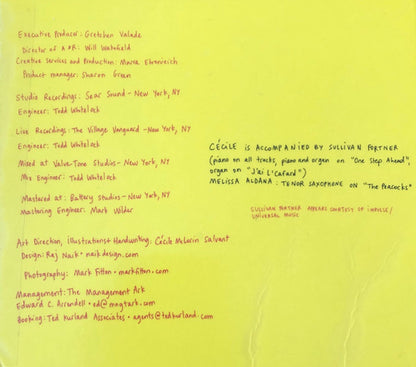 Executive Producer: Gretchen Valade
Director of A&R: Will Wakefield
Creative Services and Production: Maria Ehrenreich
Product manager: Sharon Green
Studio Recordings: Sear Sound - New York, NY
Engineer: Todd Whitelock
Live Recordings: The Village Vanguard - New York, NY
Engineer: Todd Whitelock
Mixed at Valve-Tone Studios - New York, NY
Mix Engineer: Todd Whitelock
Mastered at: Battery Studios - New York, NY
Mastering Engineer: Mark Wilder
Art Direction, illustrations + Handwriting: Cécile McLorin Salvant
Design: Raj Naik • naikdesign.com
Photography: Mark Fitton • markfitton.com
Management: The Management Ark
Edward C. Arrendell • ed@mngtark.com
Booking: Ted Kurland Associates • agents@tedkurland.com
CÉCILE IS ACCOMPANIED BY SULLIVAN FORTNER
(piano on all tracks, piano and organ on "One Step Ahead",
organ on "J'ai L'Cafard")
MELISSA ALDANA: TENOR SAXOPHONE ON "The Peacocks"
SULLIVAN FORTNER APPEARS COURTESY OF IMPULSE/
UNIVERSAL MUSIC